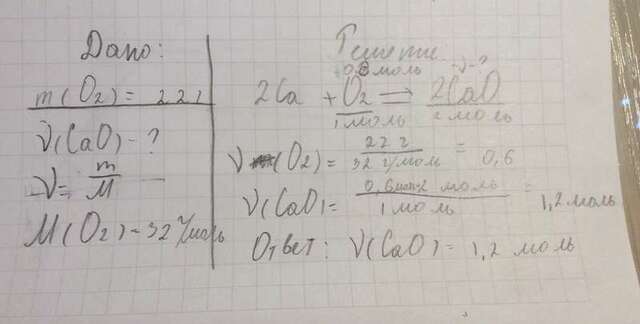 Дано:
m(O₂) = 22 г
ν(CaO) - ?
ν = m/M
M(O₂) = 32 г/моль
Решение
0,6 моль ν-?
2Ca + O₂ = 2CaO
1 моль 2 моль
ν (O₂) = 22 г / 32 г/моль = 0,6
ν(CaO) = 0,6 моль·2 моль / 1 моль = 1,2 моль
Ответ: ν(CaO) = 1,2 моль